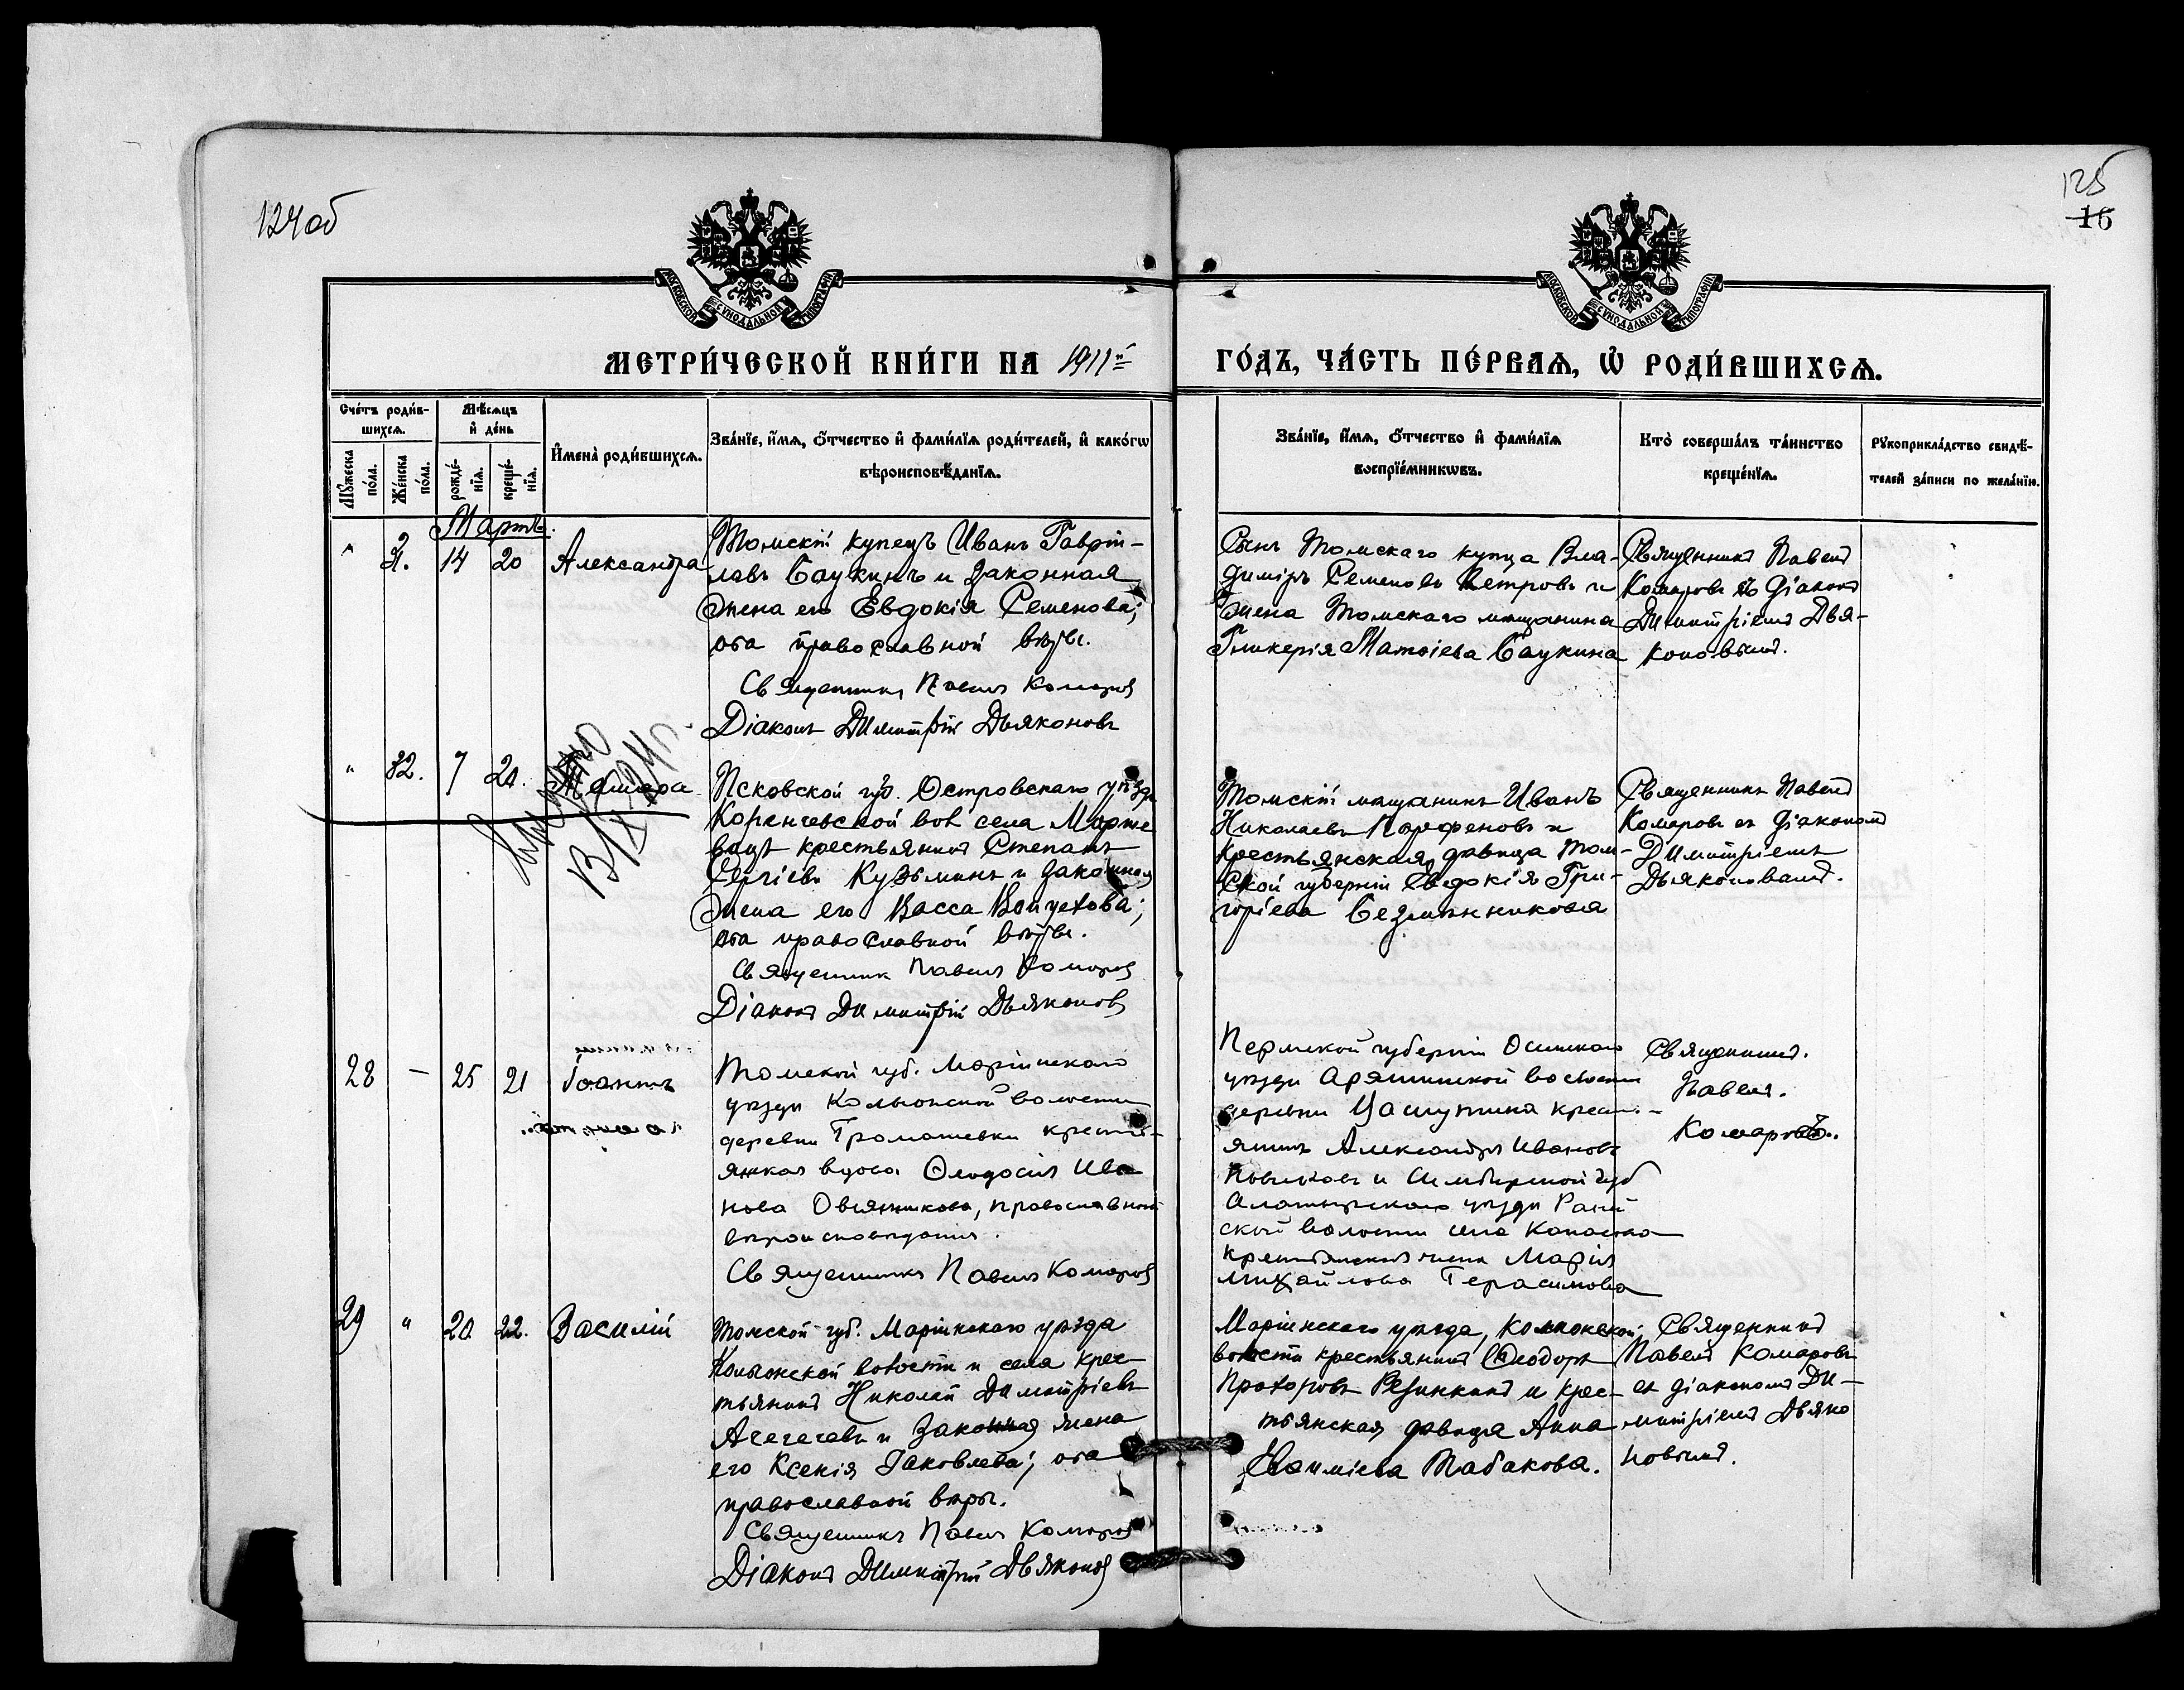 124об
125
16
МОСКОВСКОЙ СѴНОДАЛЬНОЙ ТИПОГРАФІИ
МОСКОВСКОЙ СѴНОДАЛЬНОЙ ТИПОГРАФІИ
МЕТРИ́ЧЕСКОЙ КНИ́ГИ НА 1911й ГО́ДЪ, ЧА́СТЬ ПЕ́РВАѦ, Ѽ РОДИ́ВШИХСѦ.
Сче́тъ роди́в-
шихсѧ.
Мꙋ́жеска по́ла.
Же́нска по́ла.
Мѣ́сѧцъ
и҆ де́нь
рожде́-
нїѧ.
креще́-
нїѧ.
И҆мена̀ роди́вшихсѧ.
Зва́нїе, и҆́мѧ, ѻ҆́тчество и҆ фами́лїѧ роди́телей, и҆ како́гѡ
вѣроисповѣ́данїѧ.
Зва́нїе, и҆́мѧ, ѻ҆́тчество и҆ фами́лїѧ
воспрїе́мникѡвъ.
Кто̀ соверша́лъ та́инство
креще́нїѧ.
Рꙋкоприкла́дство свидѣ́-
телей за́писи по жела́нїю.
Мартъ.
14 20 Александра
Томскій купецъ Иванъ Гаврі-
ловъ Баукинъ и законная
жена его Евдокія Семенова;
оба православной вѣры.
Священникъ Павелъ Комаровъ
Діаконъ Димитрій Дьяконовъ
Сынъ Томскаго купца Вла-
диміръ Семеновъ Петровъ и
жена Томскаго мѣщанина
Гликерія Матѳіева Баукина
Священникъ Павелъ
Комаровъ съ діакономъ
Димитріемъ Дья-
коновымъ.
" 32. 7 21. Тамара
Псковской губ. Островскаго уѣзда
вол села
крестьянинъ Степанъ
Сергіевъ Кузьминъ и законная
жена его Васса
оба православной вѣры.
Священникъ Павелъ Комаровъ
Діаконъ Димитрій Дьяконовъ
Томскій мѣщанинъ Иванъ
Николаевъ Парфеновъ и
крестьянская дѣвица Том-
ской губерніи Евдокія Гри-
горіева
Священникъ Павелъ
Комаровъ съ діакономъ
Димитріемъ
Дьяконовымъ.
28 — 25 21 Іоаннъ
Томской губ. Маріинскаго
уѣзда Колыонской волости
деревни Громашевки кресть-
янская вдова Ѳеодосія Ива-
нова Овсянникова, православнаго
вѣроисповѣданія.
Священникъ Павелъ Комаровъ
Пермской губерніи Осинскаго
уѣзда волости
деревни крест-
янинъ Александръ Ивановъ
и Симбирской губ
Алатырскаго уѣзда
ской волости села
крестьянская жена Марія
Михайлова Герасимова
Священникъ.
Павелъ.
Комаровъ.
29 " 20 22. Василій
Томской губ. Маріинскаго уѣзда
Колыонской волости и села крес-
тьянинъ Николай Димитріевъ
и законная жена
его Ксенія Іаковлева; оба
православной вѣры.
Священникъ Павелъ Комаровъ
Діаконъ Димитрій Дьяконовъ
Маріинскаго уѣзда, Колыонской
волости крестьянинъ Ѳеодоръ
Прохоровъ и крес-
тьянская дѣвица Анна
Евѳиміева Табакова.
Священникъ
Павелъ Комаровъ
съ діакономъ Ди-
митріемъ Дьяко
новымъ.